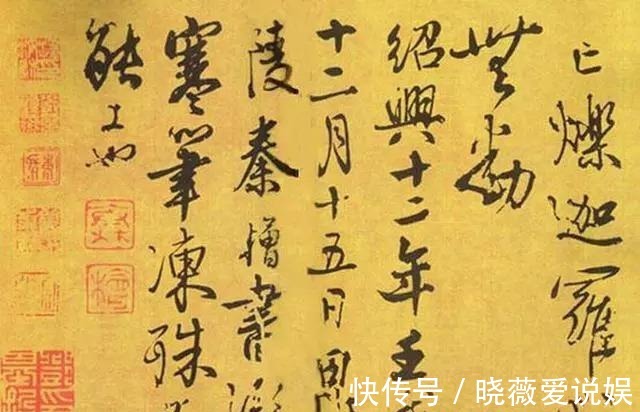 亡爍迦羅
無動
紹興十二年壬
十二月十五日
陵秦檜書
寒筆凍殊
能工也
快传号 / 晓薇爱说娱